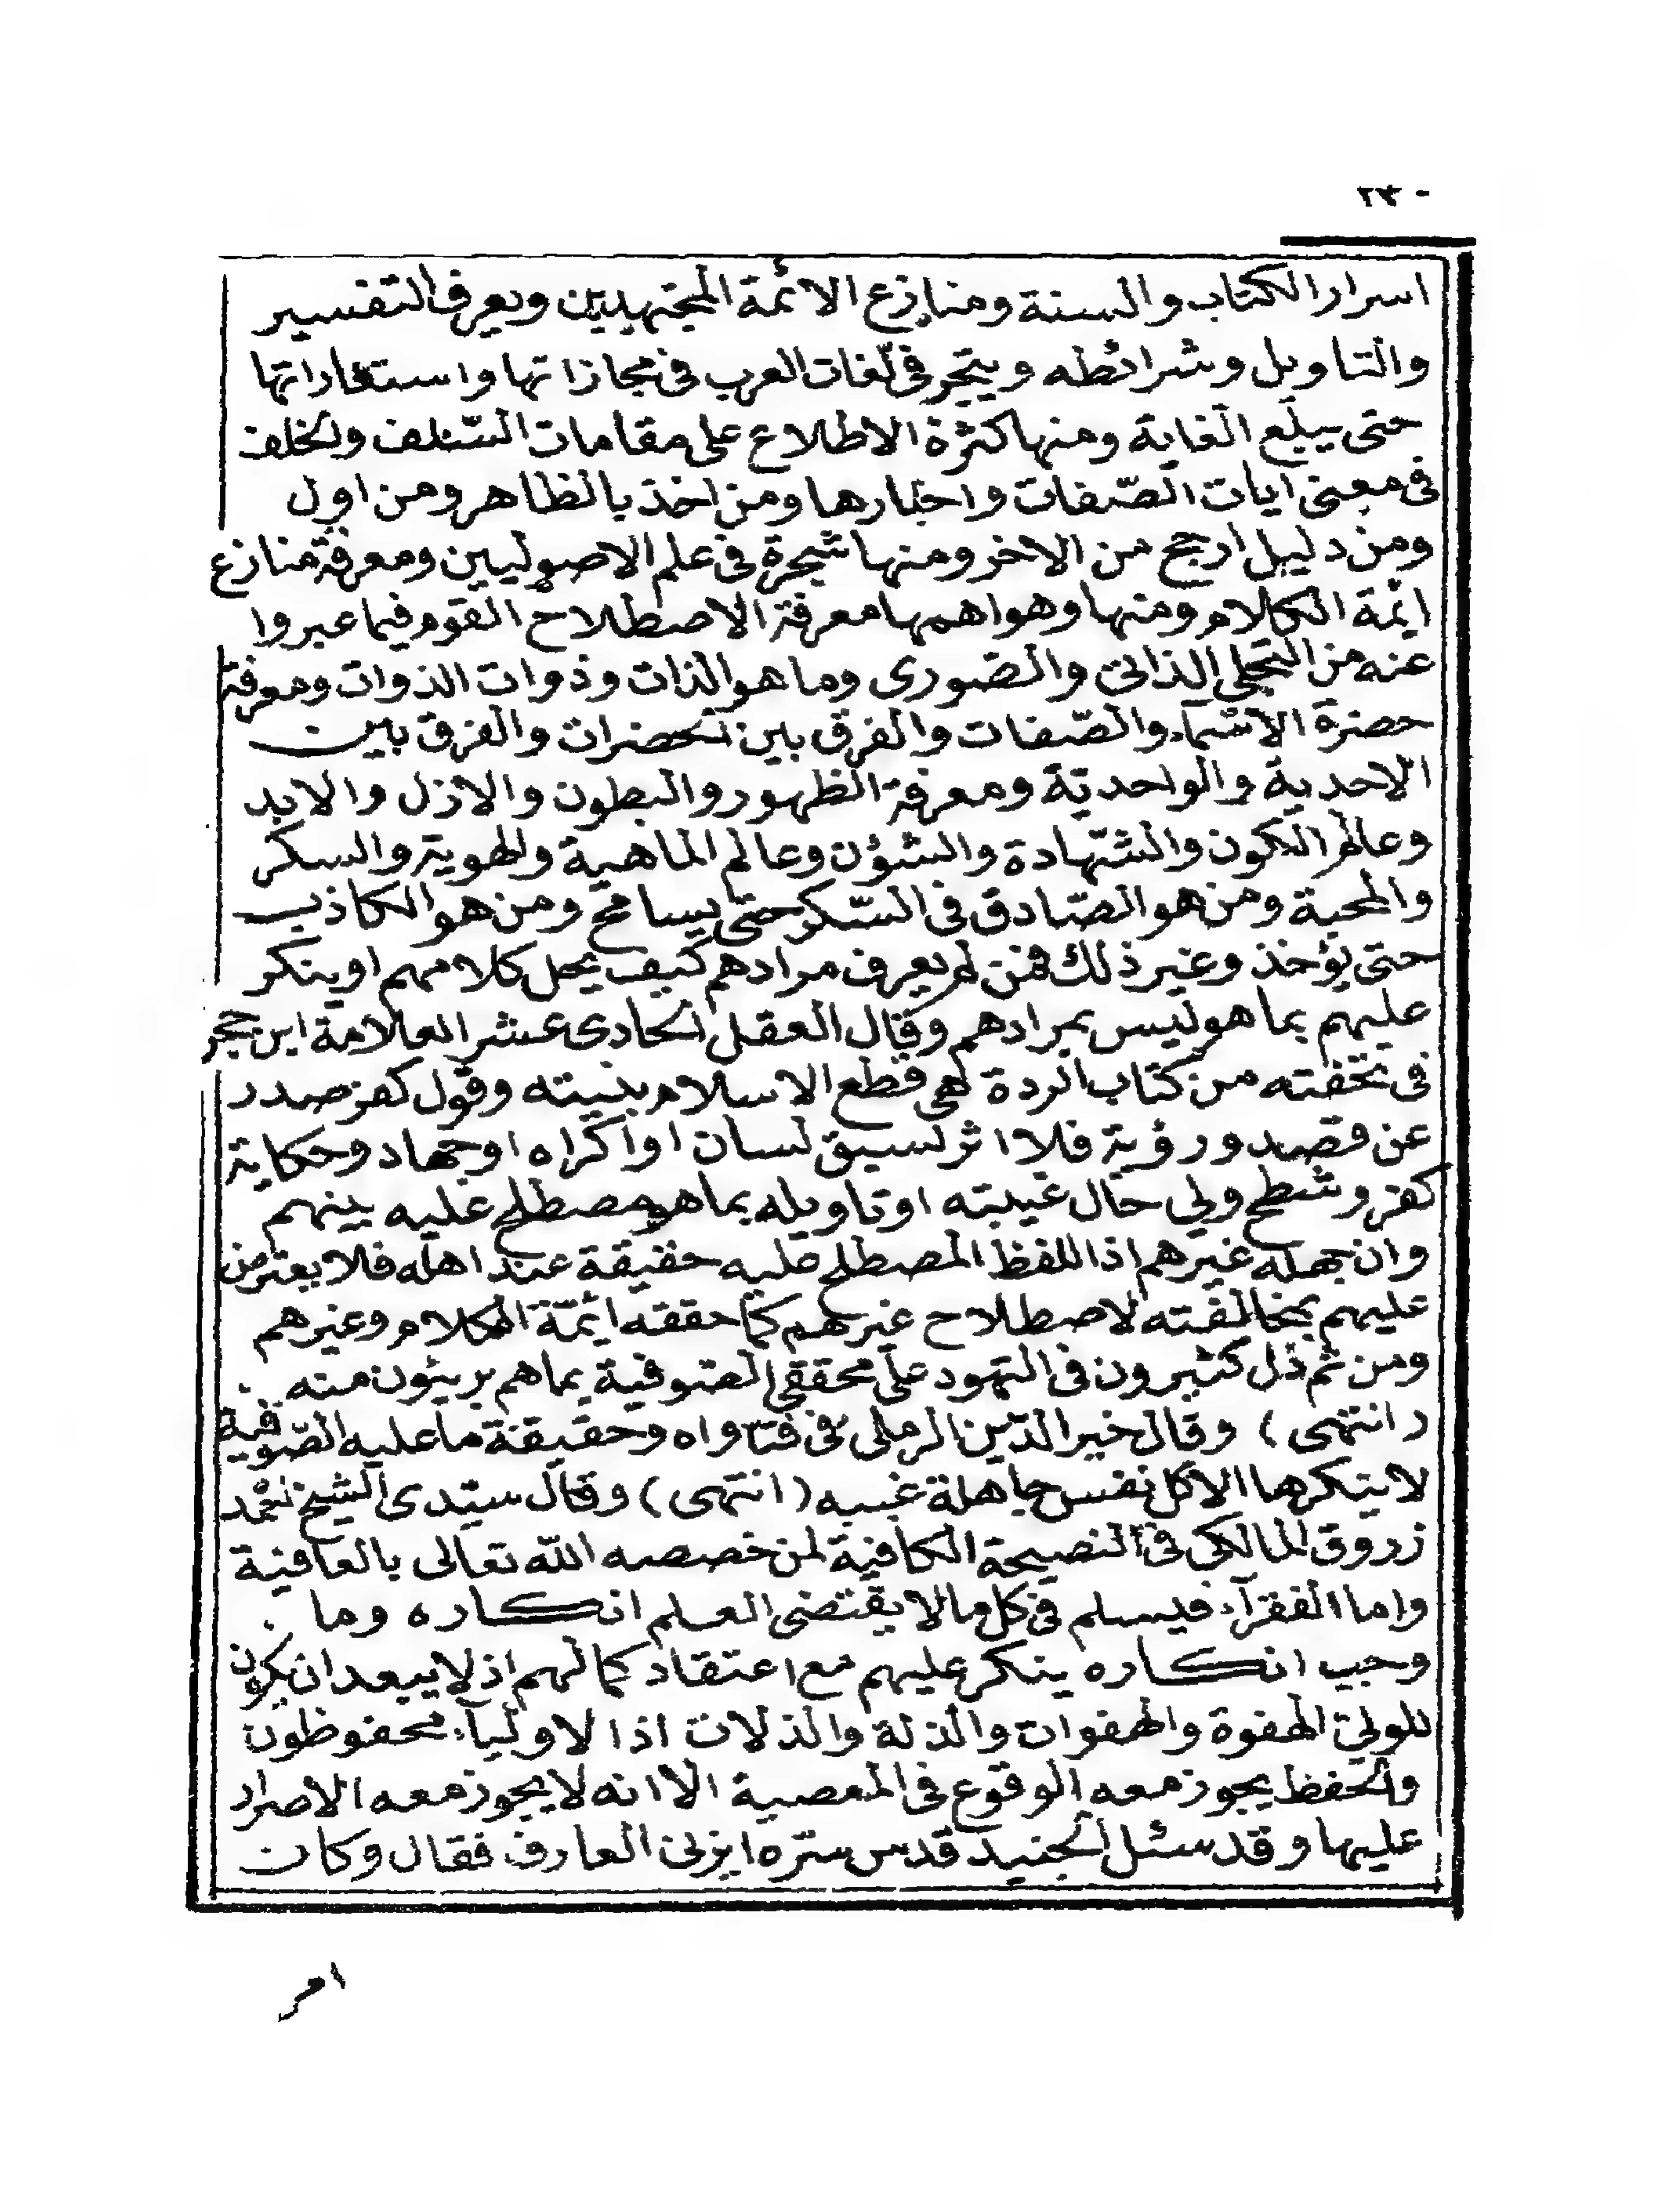 ٢٤٠
اسرار الكتاب والسنة ومنازع الائمة المجتهدين ويعرف التفسير
والتاويل وشرائطه ويتبحر فى لغات العرب فى مجازاتها واستعاراتها
حتى يبلغ الغاية ومنها كثرة الاطلاع على مقامات السّلف والخلف
فى معنى ايات الصّفات واخبارها ومن اخذ بالظاهر ومن اول
ومن دليل ارجح من الاخر ومنها تبحره فى علم الاصوليين ومعرفة منازع
ائمة الكلام ومنها وهو اهمها معرفة الاصطلاح القوم فيما عبروا
عنه من التجلى الذاتى والصّورى وما هو الذات وذوات الذوات ومعرفة
حضرة الاسماء والصّفات والفرق بين الحضرات والفرق بين
الاحدية والواحديّة ومعرفة الظهور والبطون والازل والابد
وعالم الكون والشّهادة والشؤن وعالم الماهية والهوية والسكر
والمحبة ومن هو الصّادق فى السّكر حتى يسامح ومن هو الكاذب
حتى يؤخذ وغير ذلك فمن لم يعرف مرادهم كيف يحل كلامهم او ينكر
عليهم بما هو ليس بمرادهم وقال العقل الحادى عشر العلامة ابن حجر
فى تحفته من كتاب الردة هى قطع الاسلام بنيته وقول كفر صدر
عن قصد ورؤية فلا اثر لسبق لسان او اكراه او جهاد وحكاية
كفر وشطح ولى حال غيبته او تاويله بما هو مصطلح عليه بينهم
وان جهله غيرهم اذ اللفظ المصطلح عليه حقيقة عند اهله فلا يعترض
عليهم بمخالفته لاصطلاح غيرهم كما حققه ائمّة الكلام وغيرهم
ومن ثم ذل كثيرون فى التهود على محققى الصّوفية بما هم بريئون منه
( انتهى ) وقال خير الدّين الرملى فى فتاواه وحقيقة ما عليه الصّوفية
لا ينكرها الا كل نفس جاهلة غبيه ( انتهى ) وقال سيّدى الشيخ احمد
زروق المالكى فى النصيحة الكافية لمن خصصه اللّه تعالى بالعافية
واما الفقرآء فيسلم فى كل ما لا يقتضى العلم انكاره وما
وجب انكاره ينكر عليهم مع اعتقاد كمالهم اذ لا يبعد ان يكون
للولىّ الهفوة والهفوات والذلة والذلات اذ الاوليآء محفوظون
والحفظ يجوز معه الوقوع فى المعصية الا انه لا يجوز معه الاصرار
عليها وقد سئل الجنيد قدس سرّه ايزنى العارف فقال وكان
امر